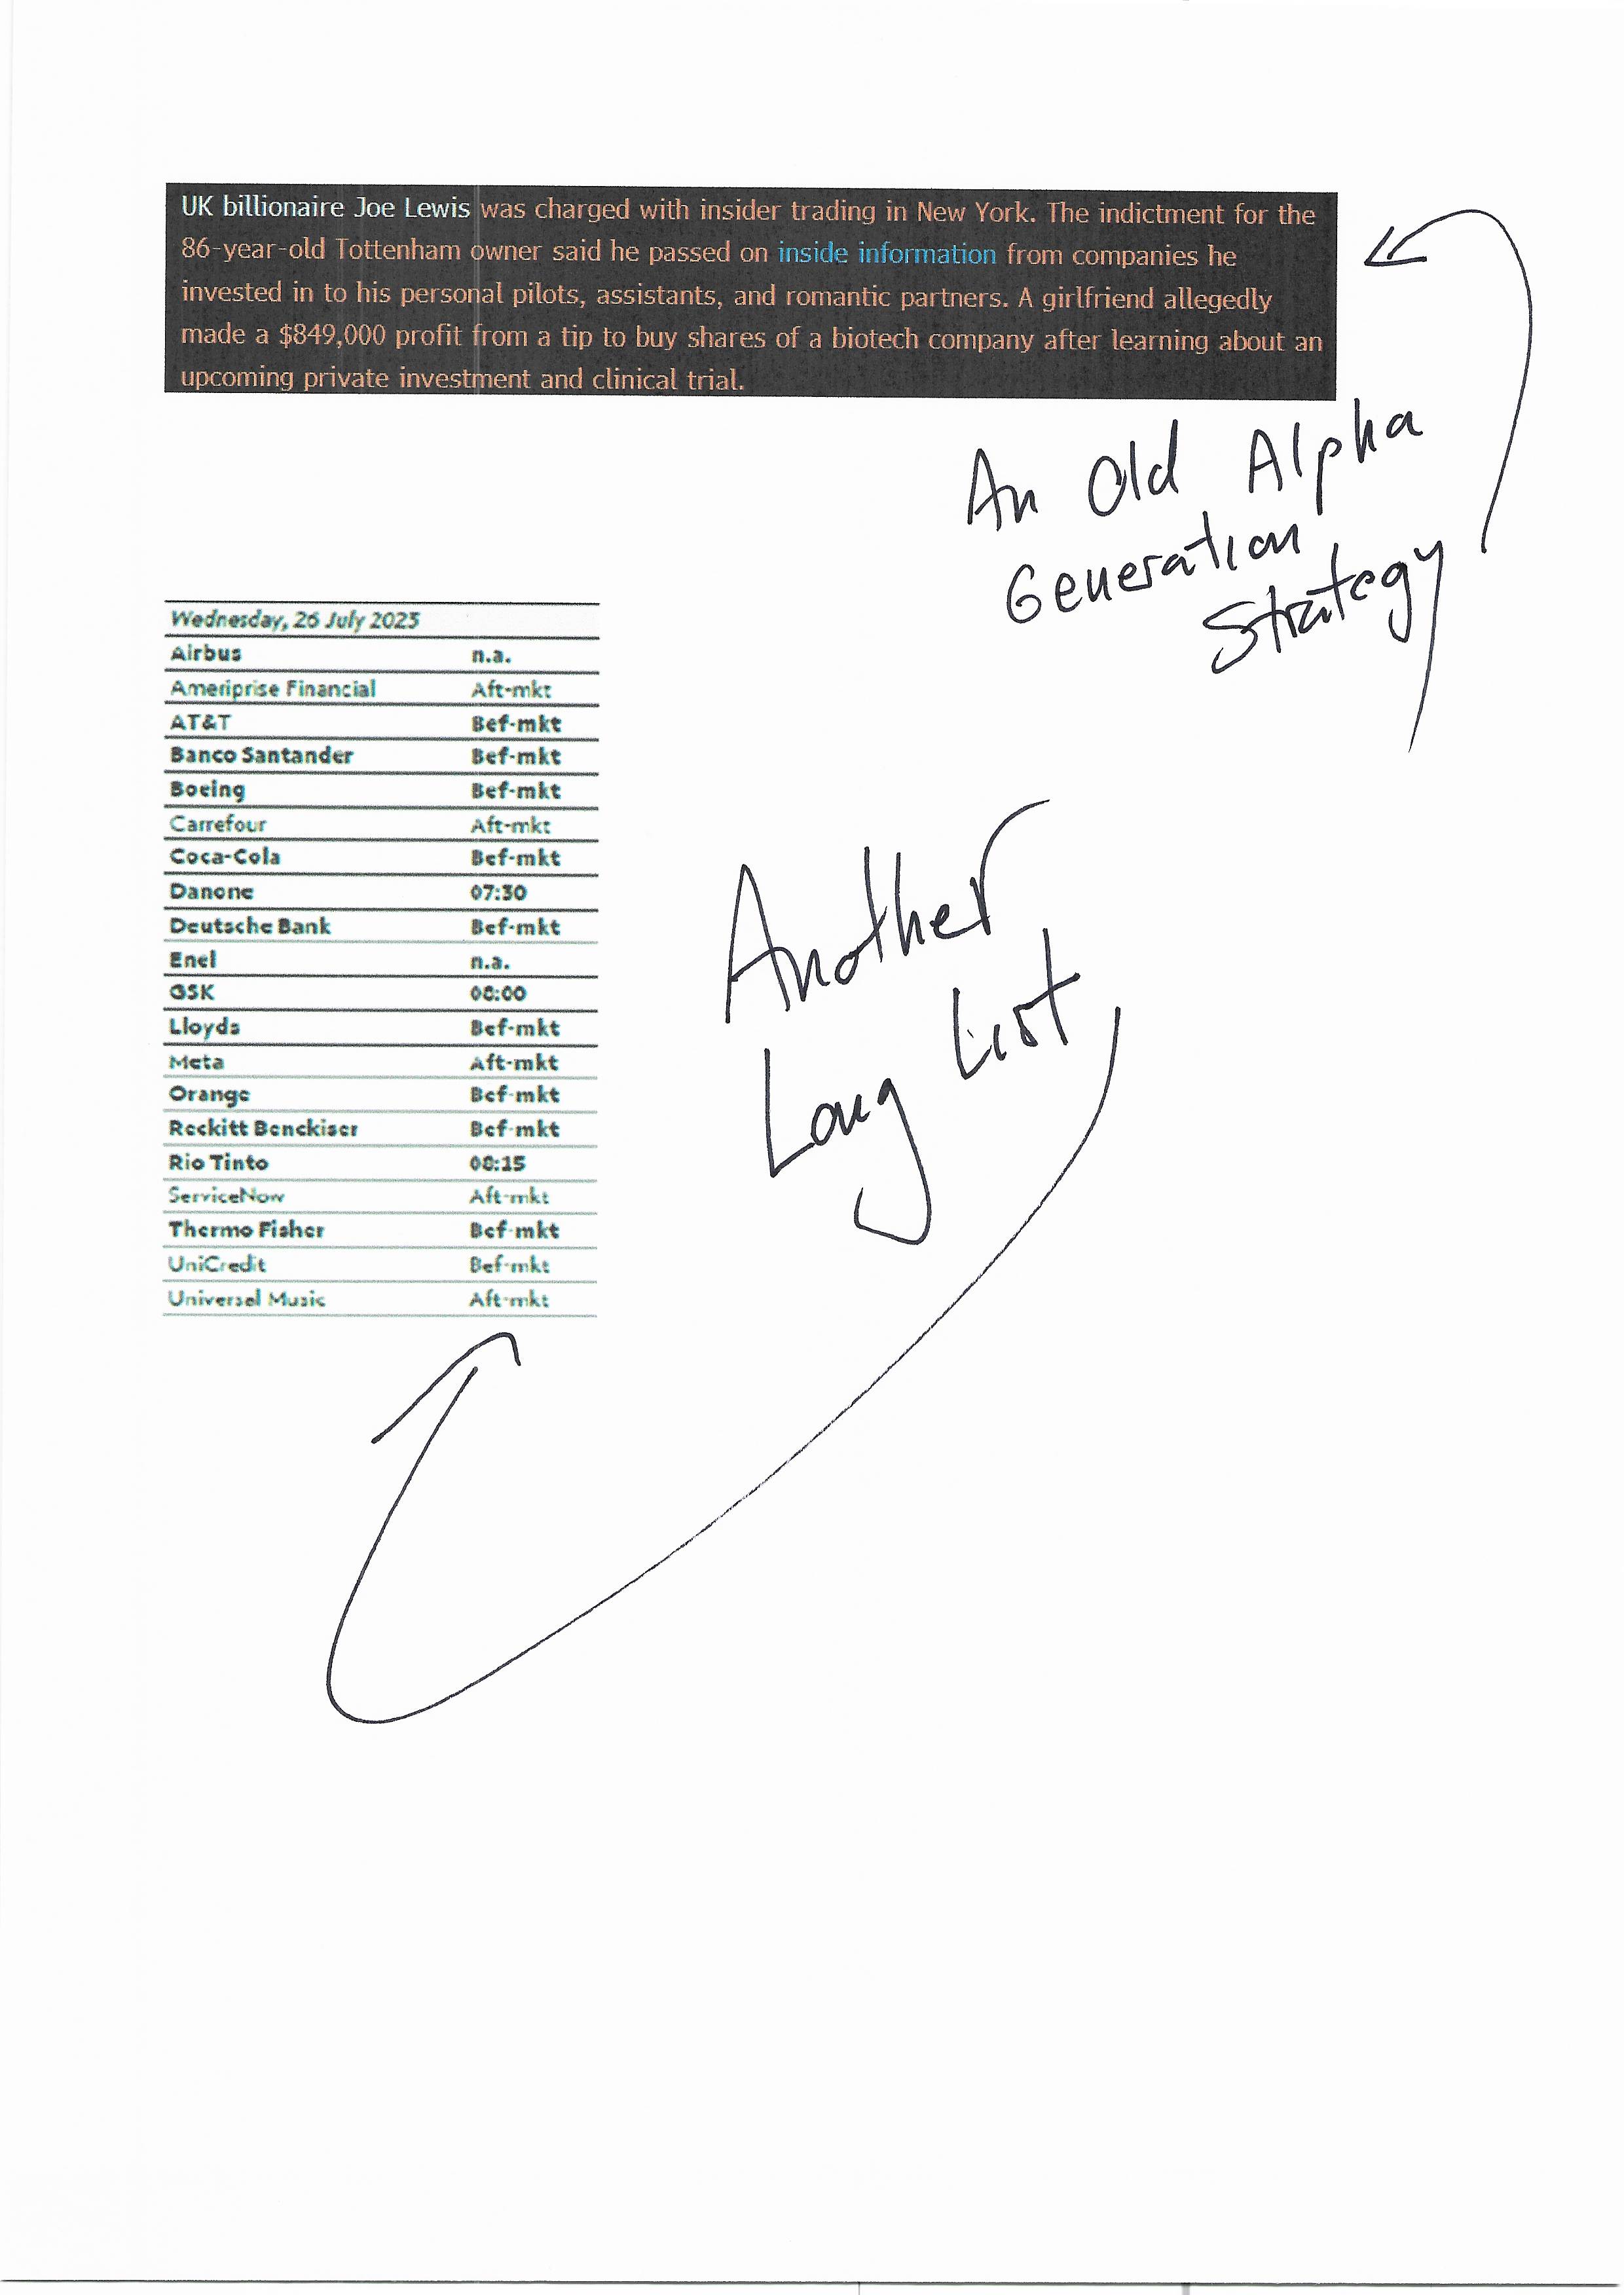 UK billionaire Joe Lewis was charged with insider trading in New York. The indictment for the
86-year-old Tottenham owner said he passed on inside information from companies he
invested in to his personal pilots, assistants, and romantic partners. A girlfriend allegedly
made a $849,000 profit from a tip to buy shares of a biotech company after learning about an
upcoming private investment and clinical trial.
An Old Alpha
Generation
Strategy
Wednesday, 26 July 2023
Airbus n.a.
Ameriprise Financial Aft-mkt
AT&T Bef-mkt
Banco Santander Bef-mkt
Boeing Bef-mkt
Carrefour Aft-mkt
Coca-Cola Bef-mkt
Danone 07:30
Deutsche Bank Bef-mkt
Enel n.a.
GSK 08:00
Lloyds Bef-mkt
Meta Aft-mkt
Orange Bef-mkt
Reckitt Benckiser Bef-mkt
Rio Tinto 08:15
ServiceNow Aft-mkt
Thermo Fisher Bef-mkt
UniCredit Bef-mkt
Universal Music Aft-mkt
Another
Long List